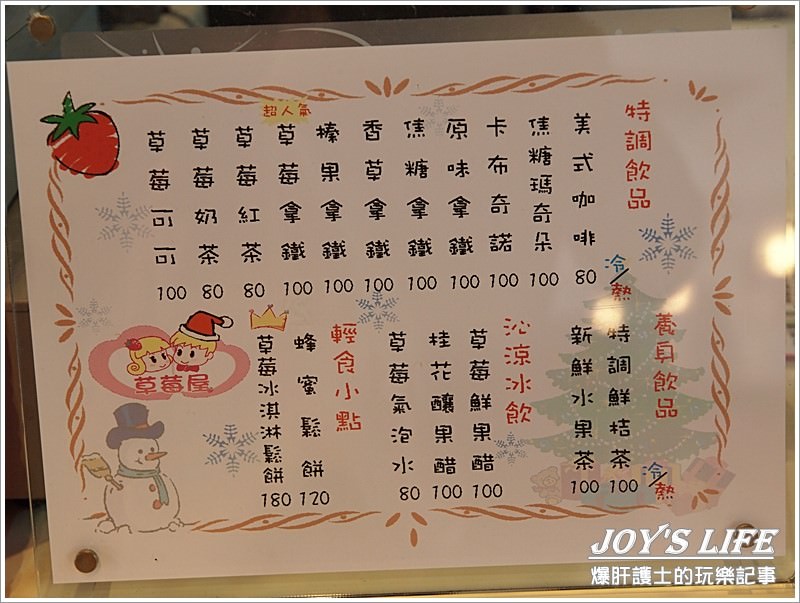 特調飲品
冷/熱
美式咖啡 80
焦糖瑪奇朵 100
卡布奇諾 100
原味拿鐵 100
焦糖拿鐵 100
香草拿鐵 100
榛果拿鐵 100
超人氣
草莓拿鐵 100
草莓紅茶 80
草莓奶茶 80
草莓可可 100
養身飲品
冷/熱
特調鮮桔茶 100
新鮮水果茶 100
沁涼冰飲
草莓鮮果醋 100
桂花釀果醋 100
草莓氣泡水 80
輕食小點
蜂蜜鬆餅 120
草莓冰淇淋鬆餅 180
草莓屋
JOY'S LIFE
爆肝護士的玩樂記事